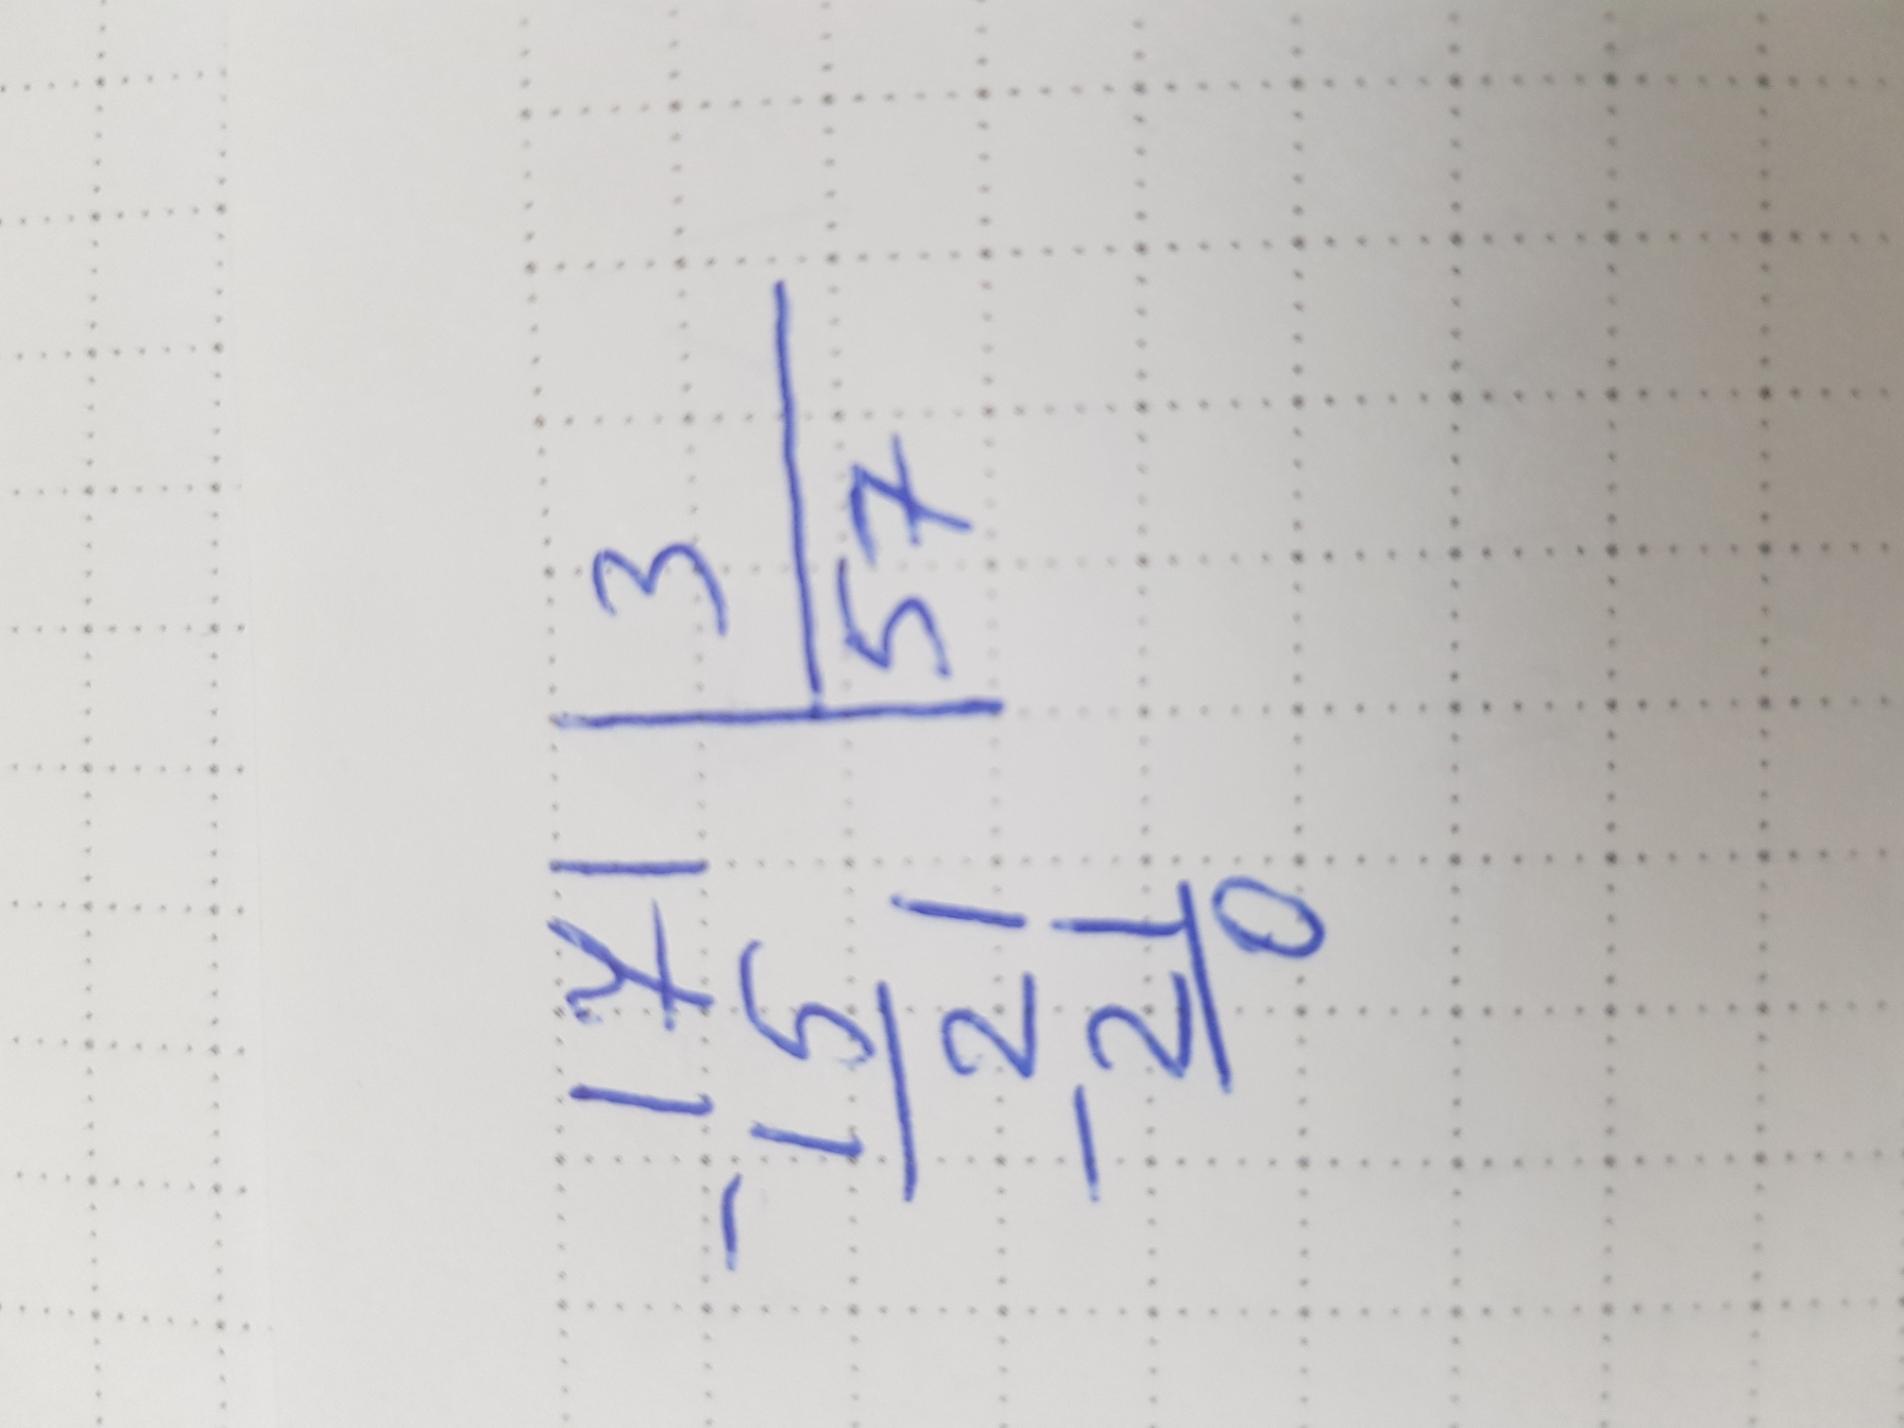 171 3
- 15 57
21
- 21
0